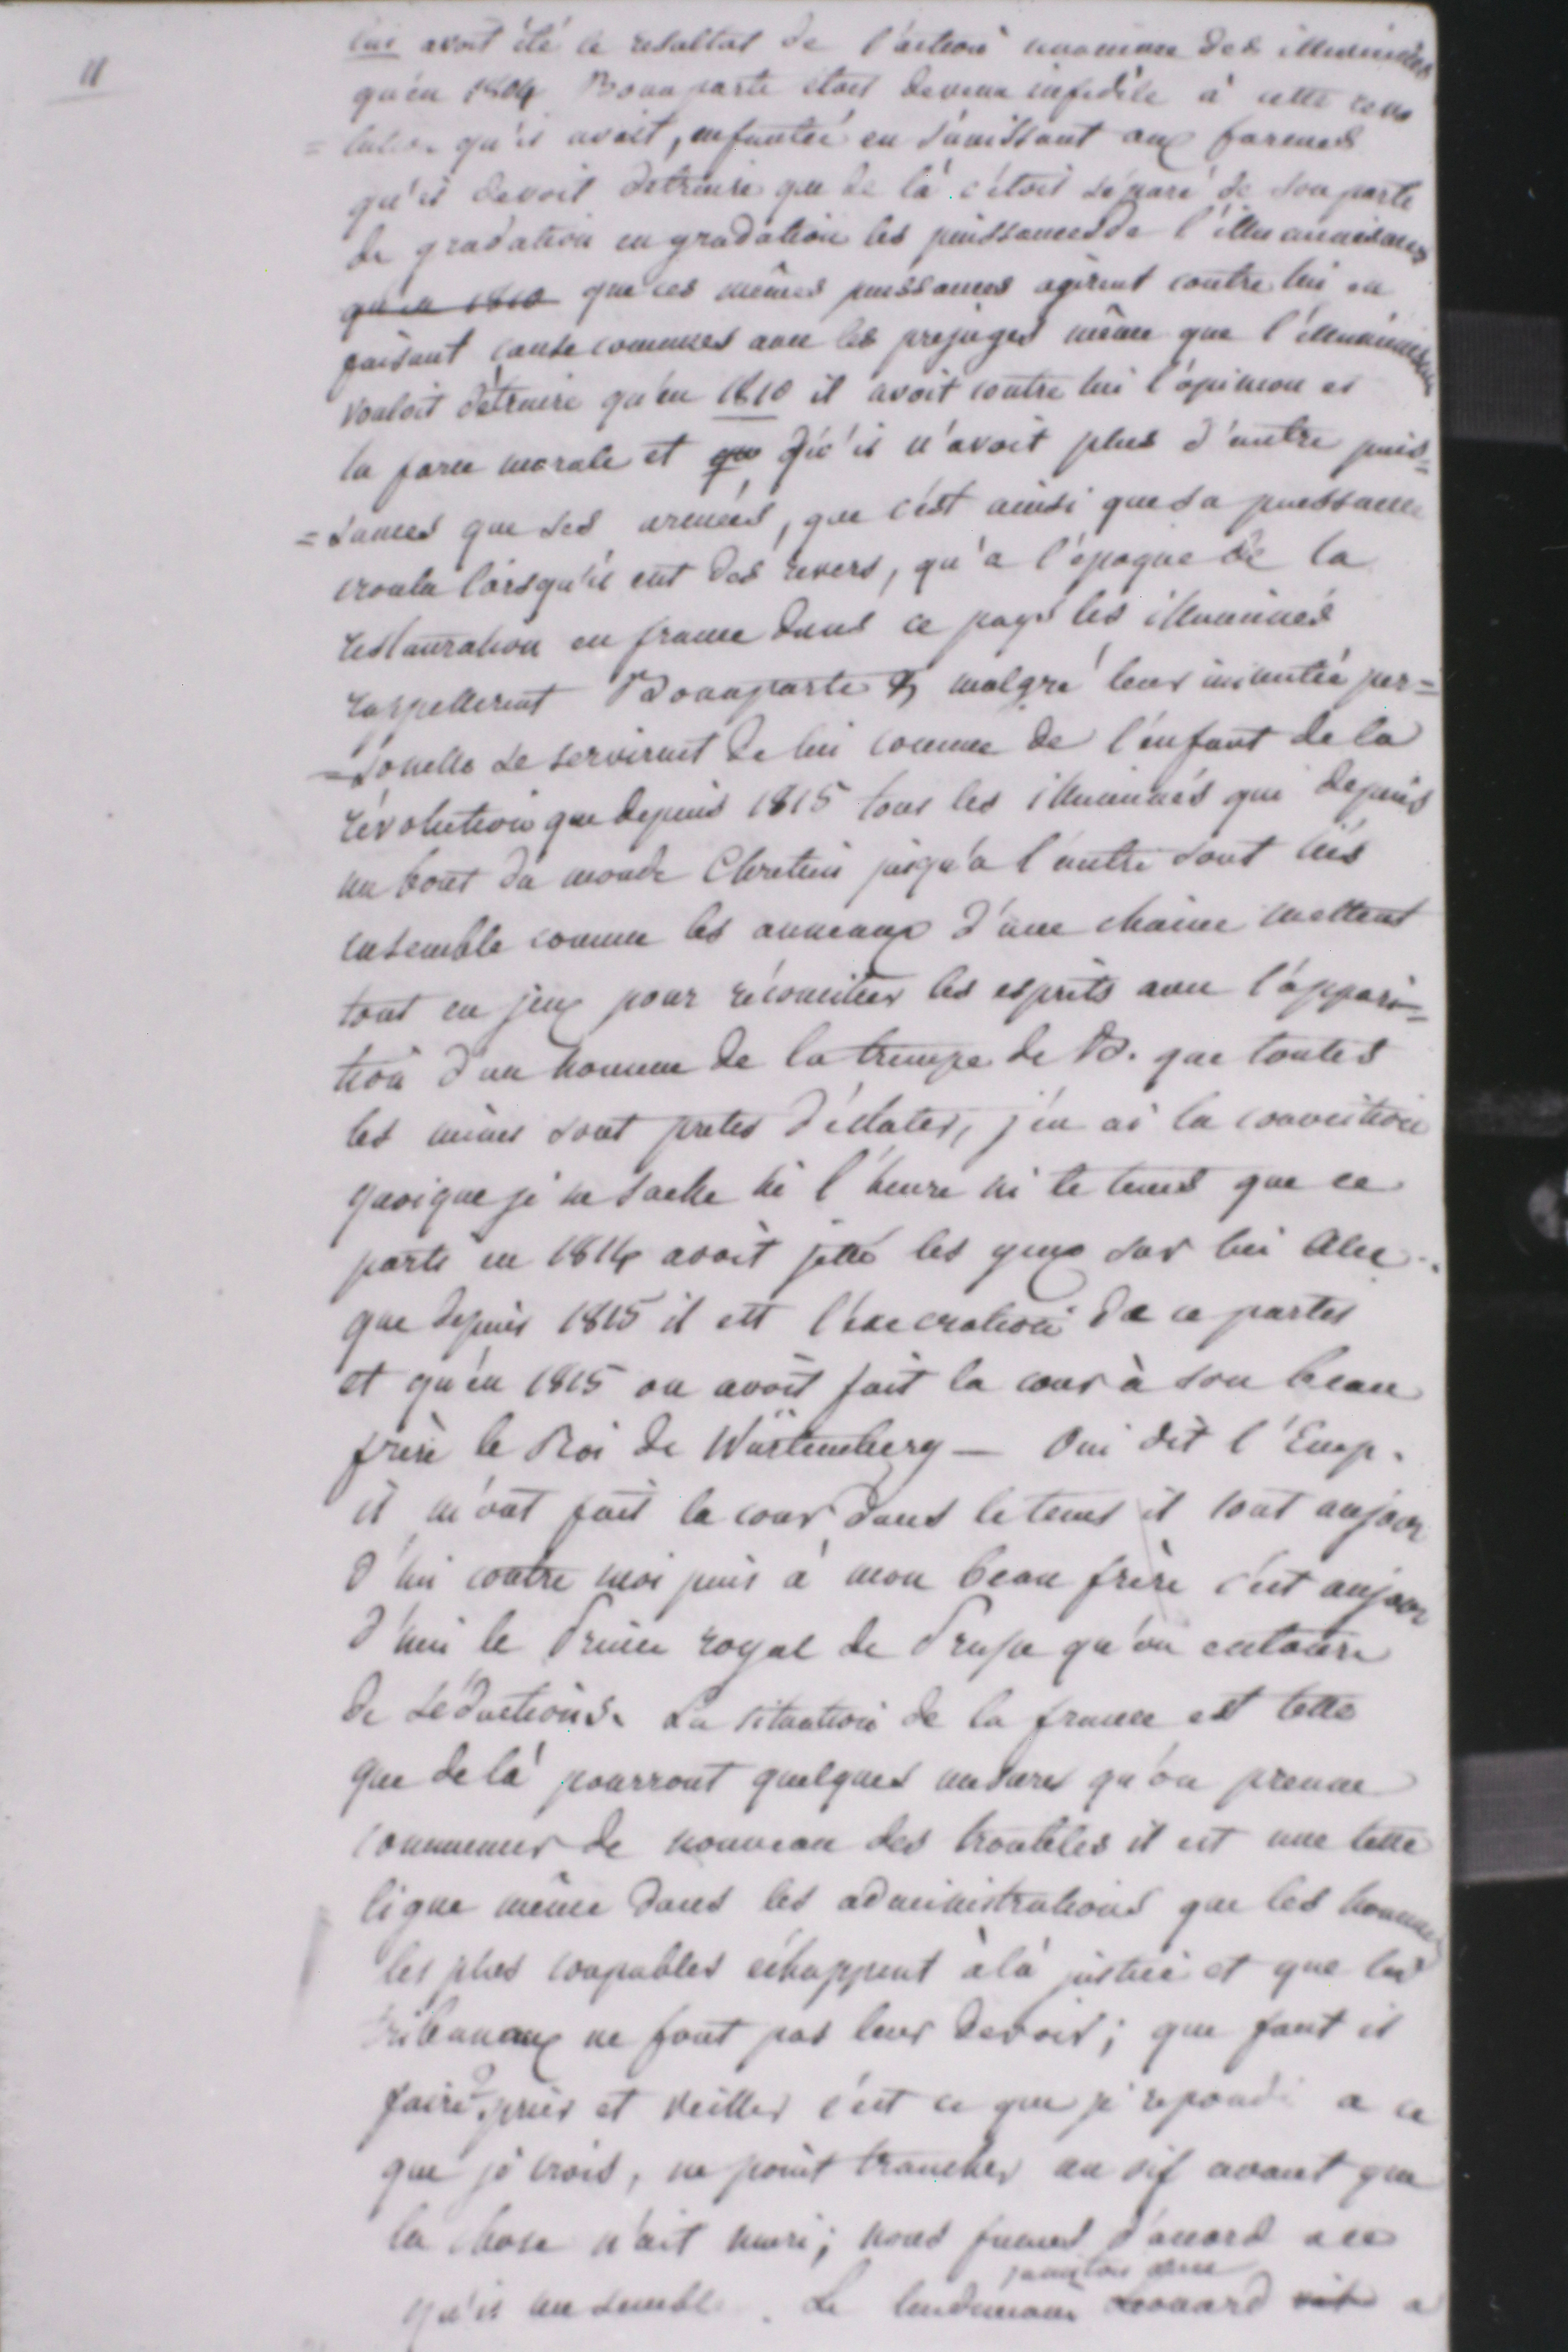 11
lui avoit été le resultat de l'action unanime des illuminés
qu'en 1804 Bonaparte étoit devenu infidèle à cette revo
= lution qu'il avoit, enfantée en s'unissant aux formes
qu'il devoit detruire que de là c'étoit séparé de son parti
de gradation en gradation les puissances de l'illuminisme
qu'en 1810 que ces mêmes puissances agirent contre lui en
faisant cause communes avec les prejuges même que l'illuminisme
vouloit détruire qu'en 1810 il avoit contre lui l'opinion et
la force morale et que qu'il n'avoit plus d'autre puis=
=sances que ses armées, que c'est ainsi que sa puissance
croula lorsqu'il eut des revers, qu'a l'époque de la
restauration en france dans ce pays les illuminés
rappellerent Bonaparte & malgré leur inimitié per=
=sonelle se servirent de lui comme de l'enfant de la
révolution que depuis 1815 tous les illuminés qui depuis
un bout du monde Chretien jusqu'a l'autre sont liés
ensemble comme les anneaux d'une chaine mettent
tout en jeux pour réconcilier les esprits avec l'appari=
tion d'un homme de la trempe de B. que toutes
les mines sont pretes d'éclater, j'en ai la conviction
quoique je ne sache ni l'heure ni le tems que ce
parti en 1814 avoit jetté les yeux sur lui Alex.
que depuis 1815 il est l'éxecration de ce partis
et qu'en 1815 on avoit fait la cour à son beau
frère le Roi de Würtemberg — Oui dit l'Emp.
il m'ont fait la cour dans le tems il sont aujour
d'hui contre moi puis à mon beau frère c'est aujour
d'hui le Prince royal de Prusse qu'on entoure
de séductions. La situation de la france est telle
que de là pourront quelques mesures qu'on prenne
commencer de nouveau des troubles il est une telle
ligue même dans les administrations que les hommes
les plus coupables échappent à la justice et que les
tribunaux ne font pas leur devoir; que faut il
faire? prier et veiller c'est ce que je repondi a ce
que je crois, ne point trancher au vif avant que
la chose n'ait muri; nous fumes d'accord a ce
qu'il me semble. Le lendemain Leonard a